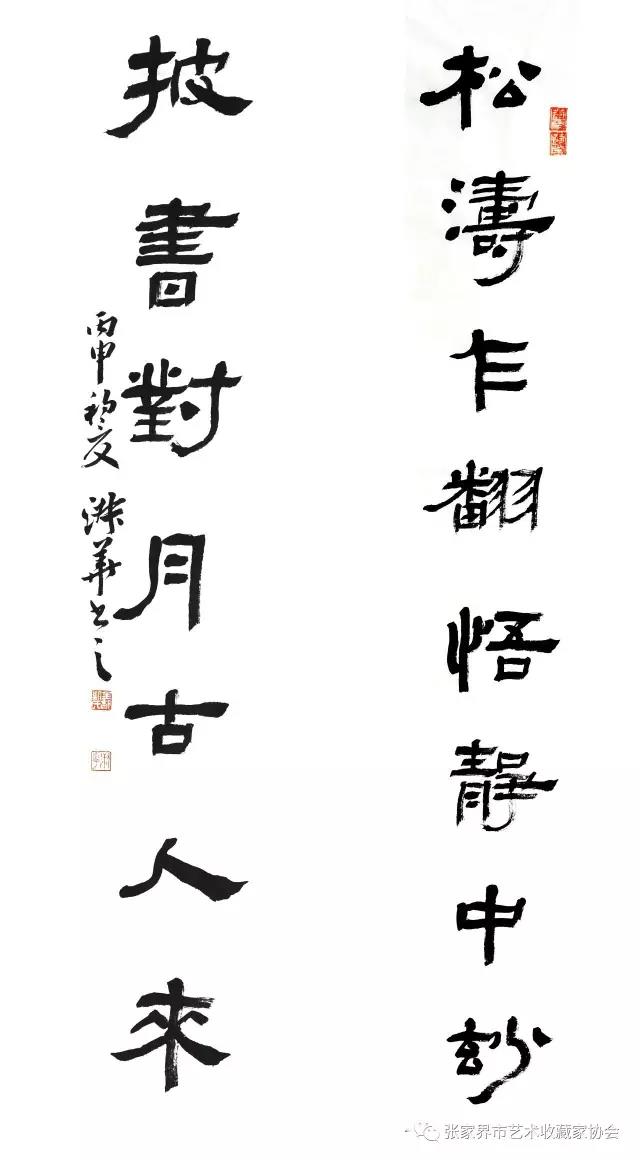 松濤乍翻悟静中玅
披書對月古人來
丙申初夏 洣華書之
张家界市艺术收藏家协会